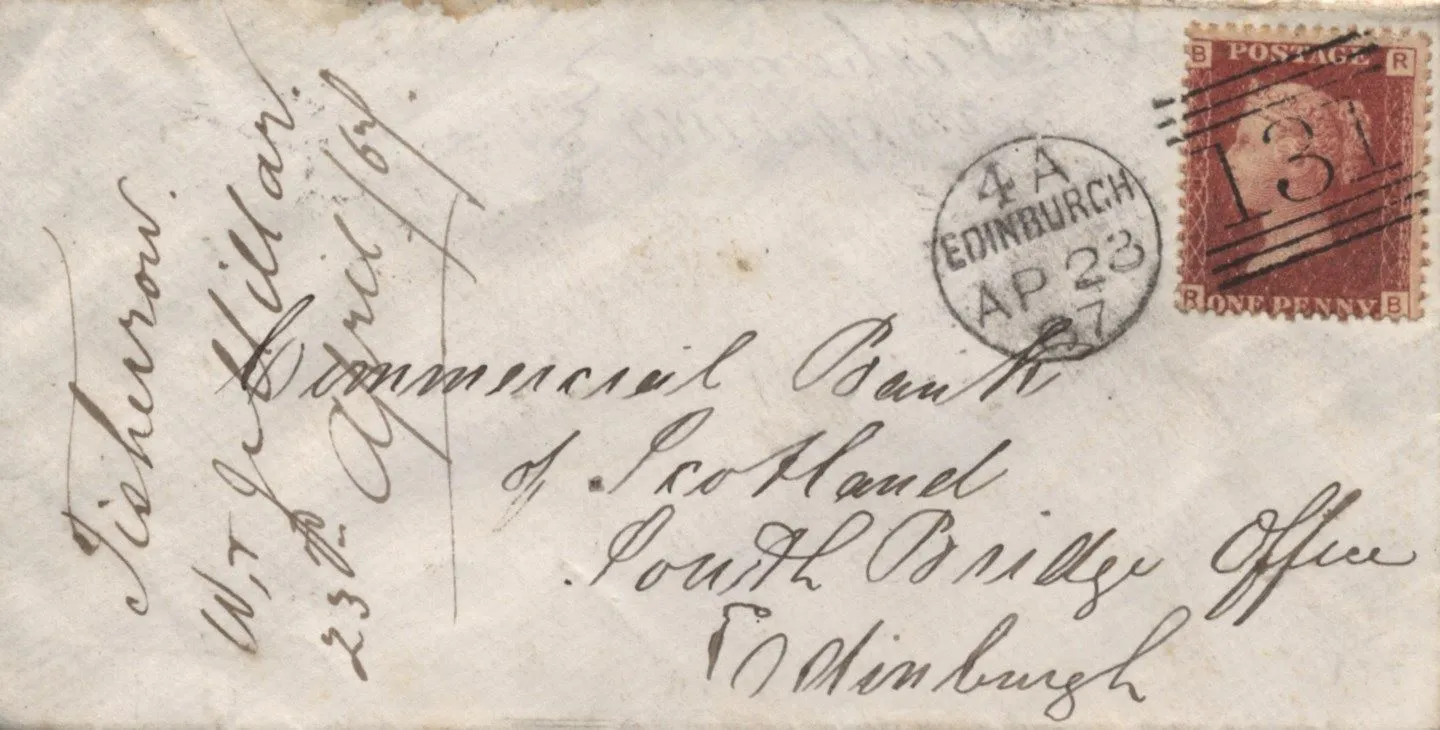 B POSTAGE R
131
R ONE PENNY B
4 A
EDINBURGH
AP 23
67
Commercial Bank
of Scotland
South Bridge Office
Edinburgh
Fisherrow.
W & J Millar.
23rd April /67